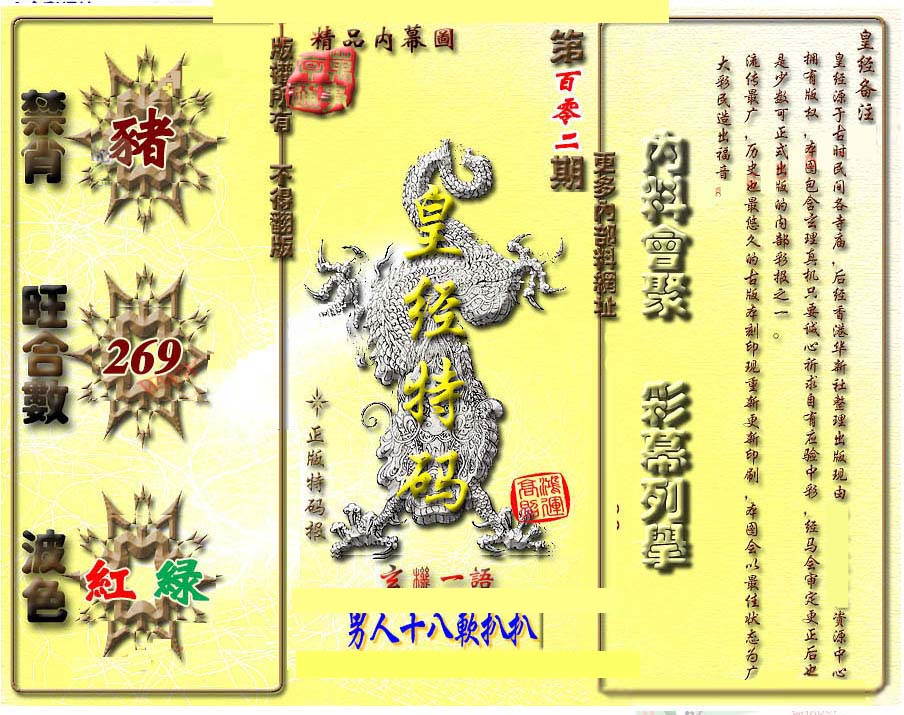 禁肖
豬
旺合數
269
波色
紅 綠
版權所有 不得翻版
精品内幕圖
第百零二期
皇经特码
正版特码报
鸿運高照
玄機一語
男人十八軟扒扒
更多內部料網址
內料會聚 彩幕列舉
皇经备注
皇经源于古时民间各寺庙，后经香港华新社整理出版现由 资源中心
拥有版权，本图包含玄理真机只要诚心祈求自有应验中彩，经马会审定更正后也
是少数可正式出版的内部彩报之一。
流传最广，历史也最悠久的古版本刻印现重新更新印刷，本图会以最佳状态为广
大彩民造出福音